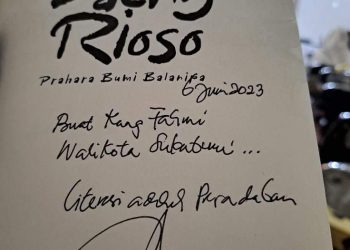 Daeng
Rioso
Prahara Bumi Balanipa
6 Juni 2023
Buat Kang Fahmi
Walikota Sukabumi ...
Literasi adalah Peradaban